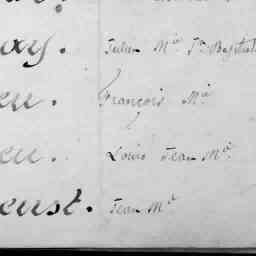 ay. Julien M.ie J.n Baptist
eu. François M.ie
eu. Louis Jean M.ie
eust. Jean M.ie